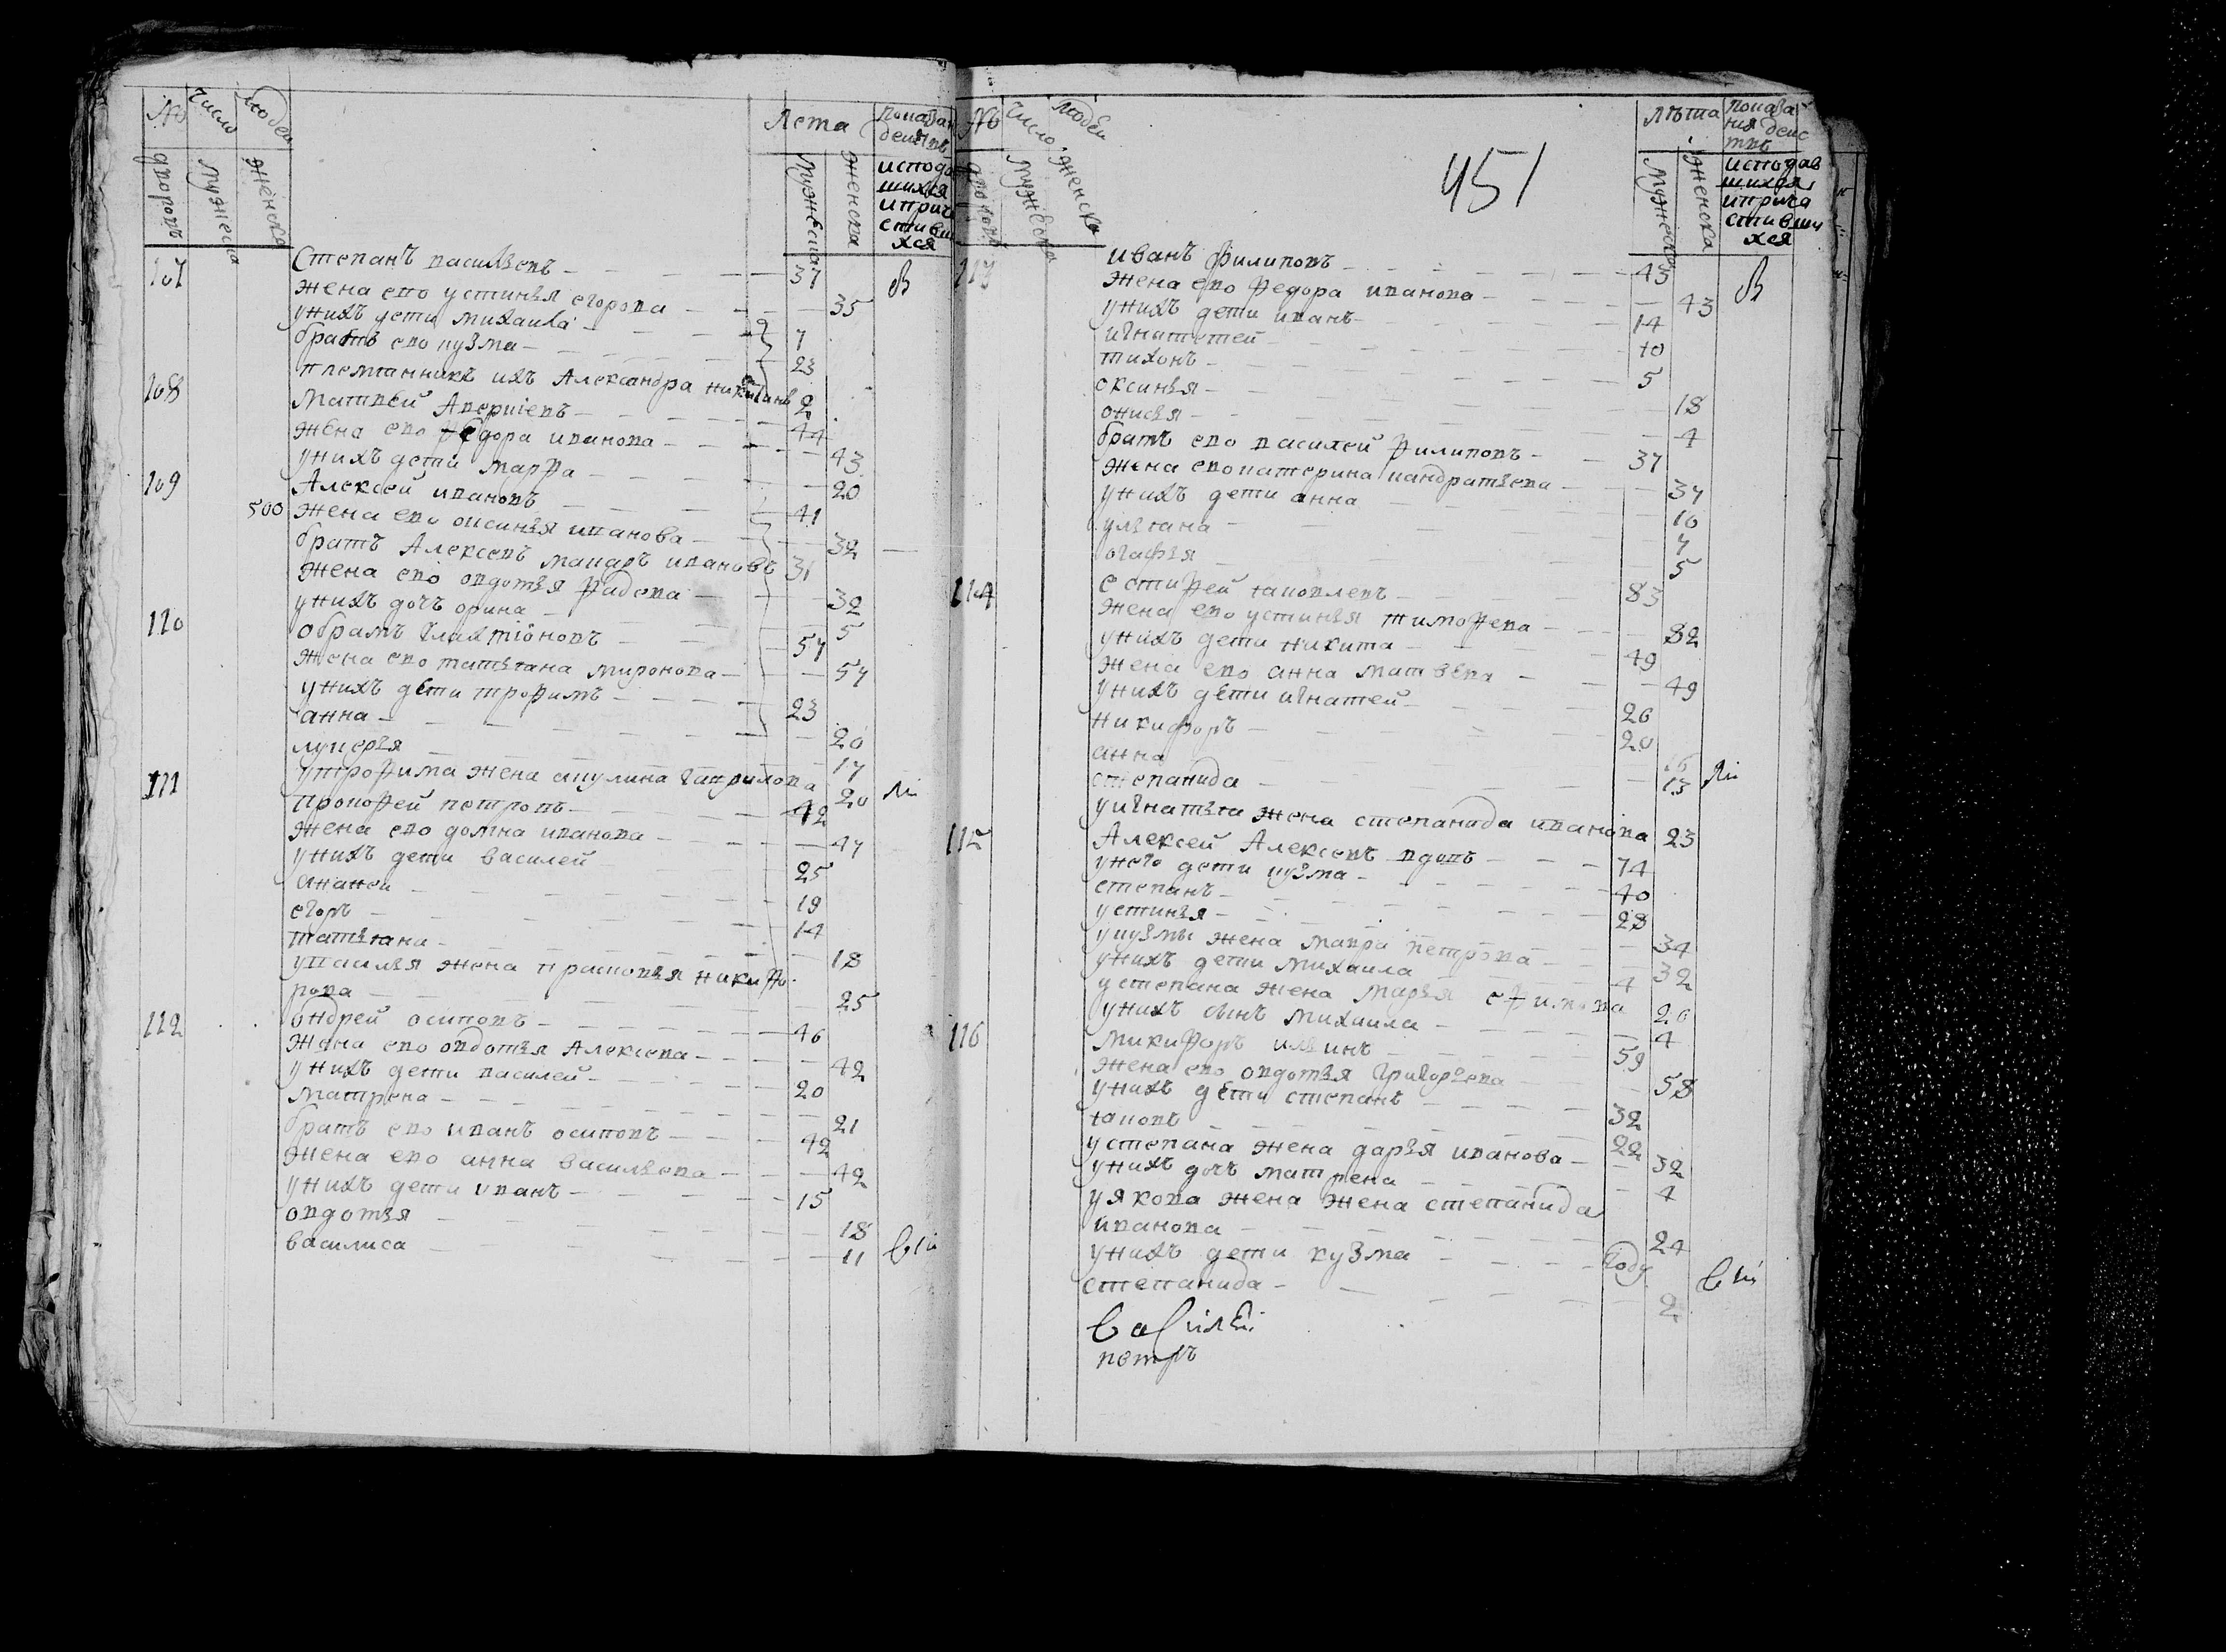 № дворовъ число мужеска людей женска Лета мужеска женска показан действъ
исповда
шихся
и прич
стивши
хся
107 Степанъ васильевъ 37 вси
жена ево устинья егорова 35
у нихъ дети михаила 7
братъ ево кузма 23
племянникъ ихъ Александра никитинъ 2
108 Матвей Аверкіевъ 44
жена ево федора иванова 43
у нихъ дети марфа 20
109 Алексей ивановъ 41
500 жена ево оксинья иванова 32
братъ Алексевъ макаръ ивановъ 31
жена ево овдотья фадева 32
у нихъ дочъ орина 5
110 обрамъ галактіоновъ 57
жена ево татьяна миронова 57
у нихъ дети трофимъ 23
анна 20
лукерья 17
у трофима жена акулина гаврилова 20
111 прокофей петровъ 42
жена ево домна иванова 47
у нихъ дети василей 25
ананеи 19
егоръ 14
татьяна 18
у василья жена прасковья никифо
рова 25
112 ондрей осиповъ 46
жена ево овдотья Алексева 42
у нихъ дети василей 20
матрена 21
братъ ево иванъ осиповъ 42
жена ево анна васильева 42
у нихъ дети иванъ 15
овдотья 18
василиса 11
№ дворовъ число мужеска людей женска 451 Лѣта мужеска женска показа
ния деис
твъ
исповдав
шихся
и прича
стивши
хся
113 иванъ филиповъ 43
жена ево федора иванова 43
у нихъ дети иванъ 14
игнатей 10
тихонъ 5
оксинья 18
онисья 4
братъ ево василей филиповъ 37
жена ево катерина кандратьева 37
у нихъ дети анна 10
ульяна 7
огафья 5
114 естифей яковлевъ 83
жена ево устинья тимофева 82
у нихъ дети никита 49
жена ево анна матвѣва 49
у нихъ дети игнатей 26
никифоръ 20
анна 16
степанида 13
у игнатья жена степанида иванова 23
115 Алексей Алексевъ вдовъ 74
у него дети кузма 40
степанъ 28
устинья 34
у кузмы жена мавра петрова 32
у нихъ дети михаила 4
у степана жена марья ефимова 26
у нихъ сынъ михаила 4
116 микифоръ ильинъ 59
жена ево овдотья григорьева 58
у нихъ дети степанъ 32
яковъ 22
у степана жена дарья иванова 32
у нихъ дочъ матрена 4
у якова жена жена степанида
иванова 24
у нихъ дети кузма году
степанида 2
василей
петръ